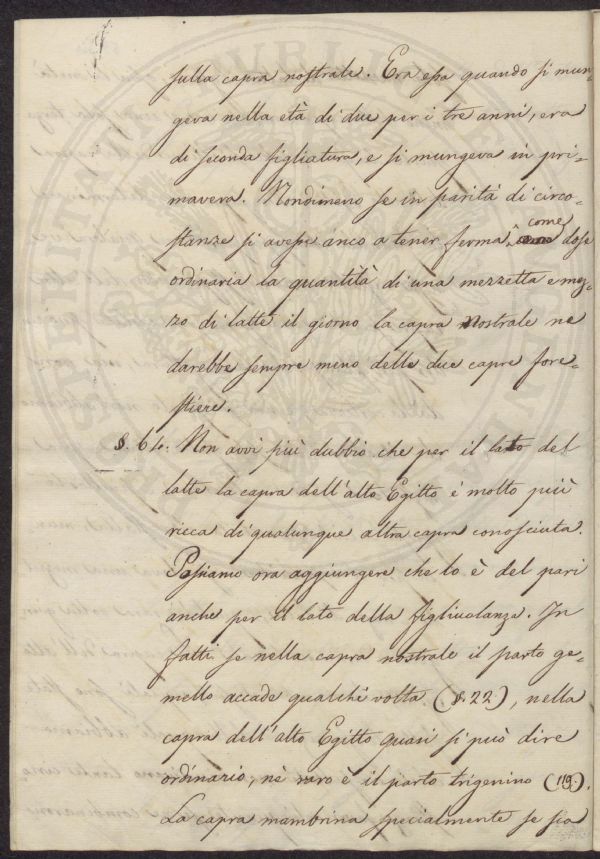 sulla capra nostrale. Era essa quando si mun-
geva nella età di due per i tre anni, era
di seconda figliatura, e si mungeva in pri-
mavera. Nondimeno se in parità di circo-
stanze si avesse anco a tener ferma, come dose
ordinaria la quantità di una mezzetta e mez-
zo di latte il giorno la capra nostrale ne
darebbe sempre meno delle due capre fore-
stiere.
§. 64. Non avvi più dubbio che per il lato del
latte la capra dell'alto Egitto è molto più
ricca di qualunque altra capra conosciuta.
Possiamo ora aggiungere che lo è del pari
anche per il lato della figliuolanza. In
fatti se nella capra nostrale il parto ge-
mello accade qualche volta (§. 22), nella
capra dell'alto Egitto quasi si può dire
ordinario, nè raro è il parto trigemino (119).
La capra mambrina specialmente se sia